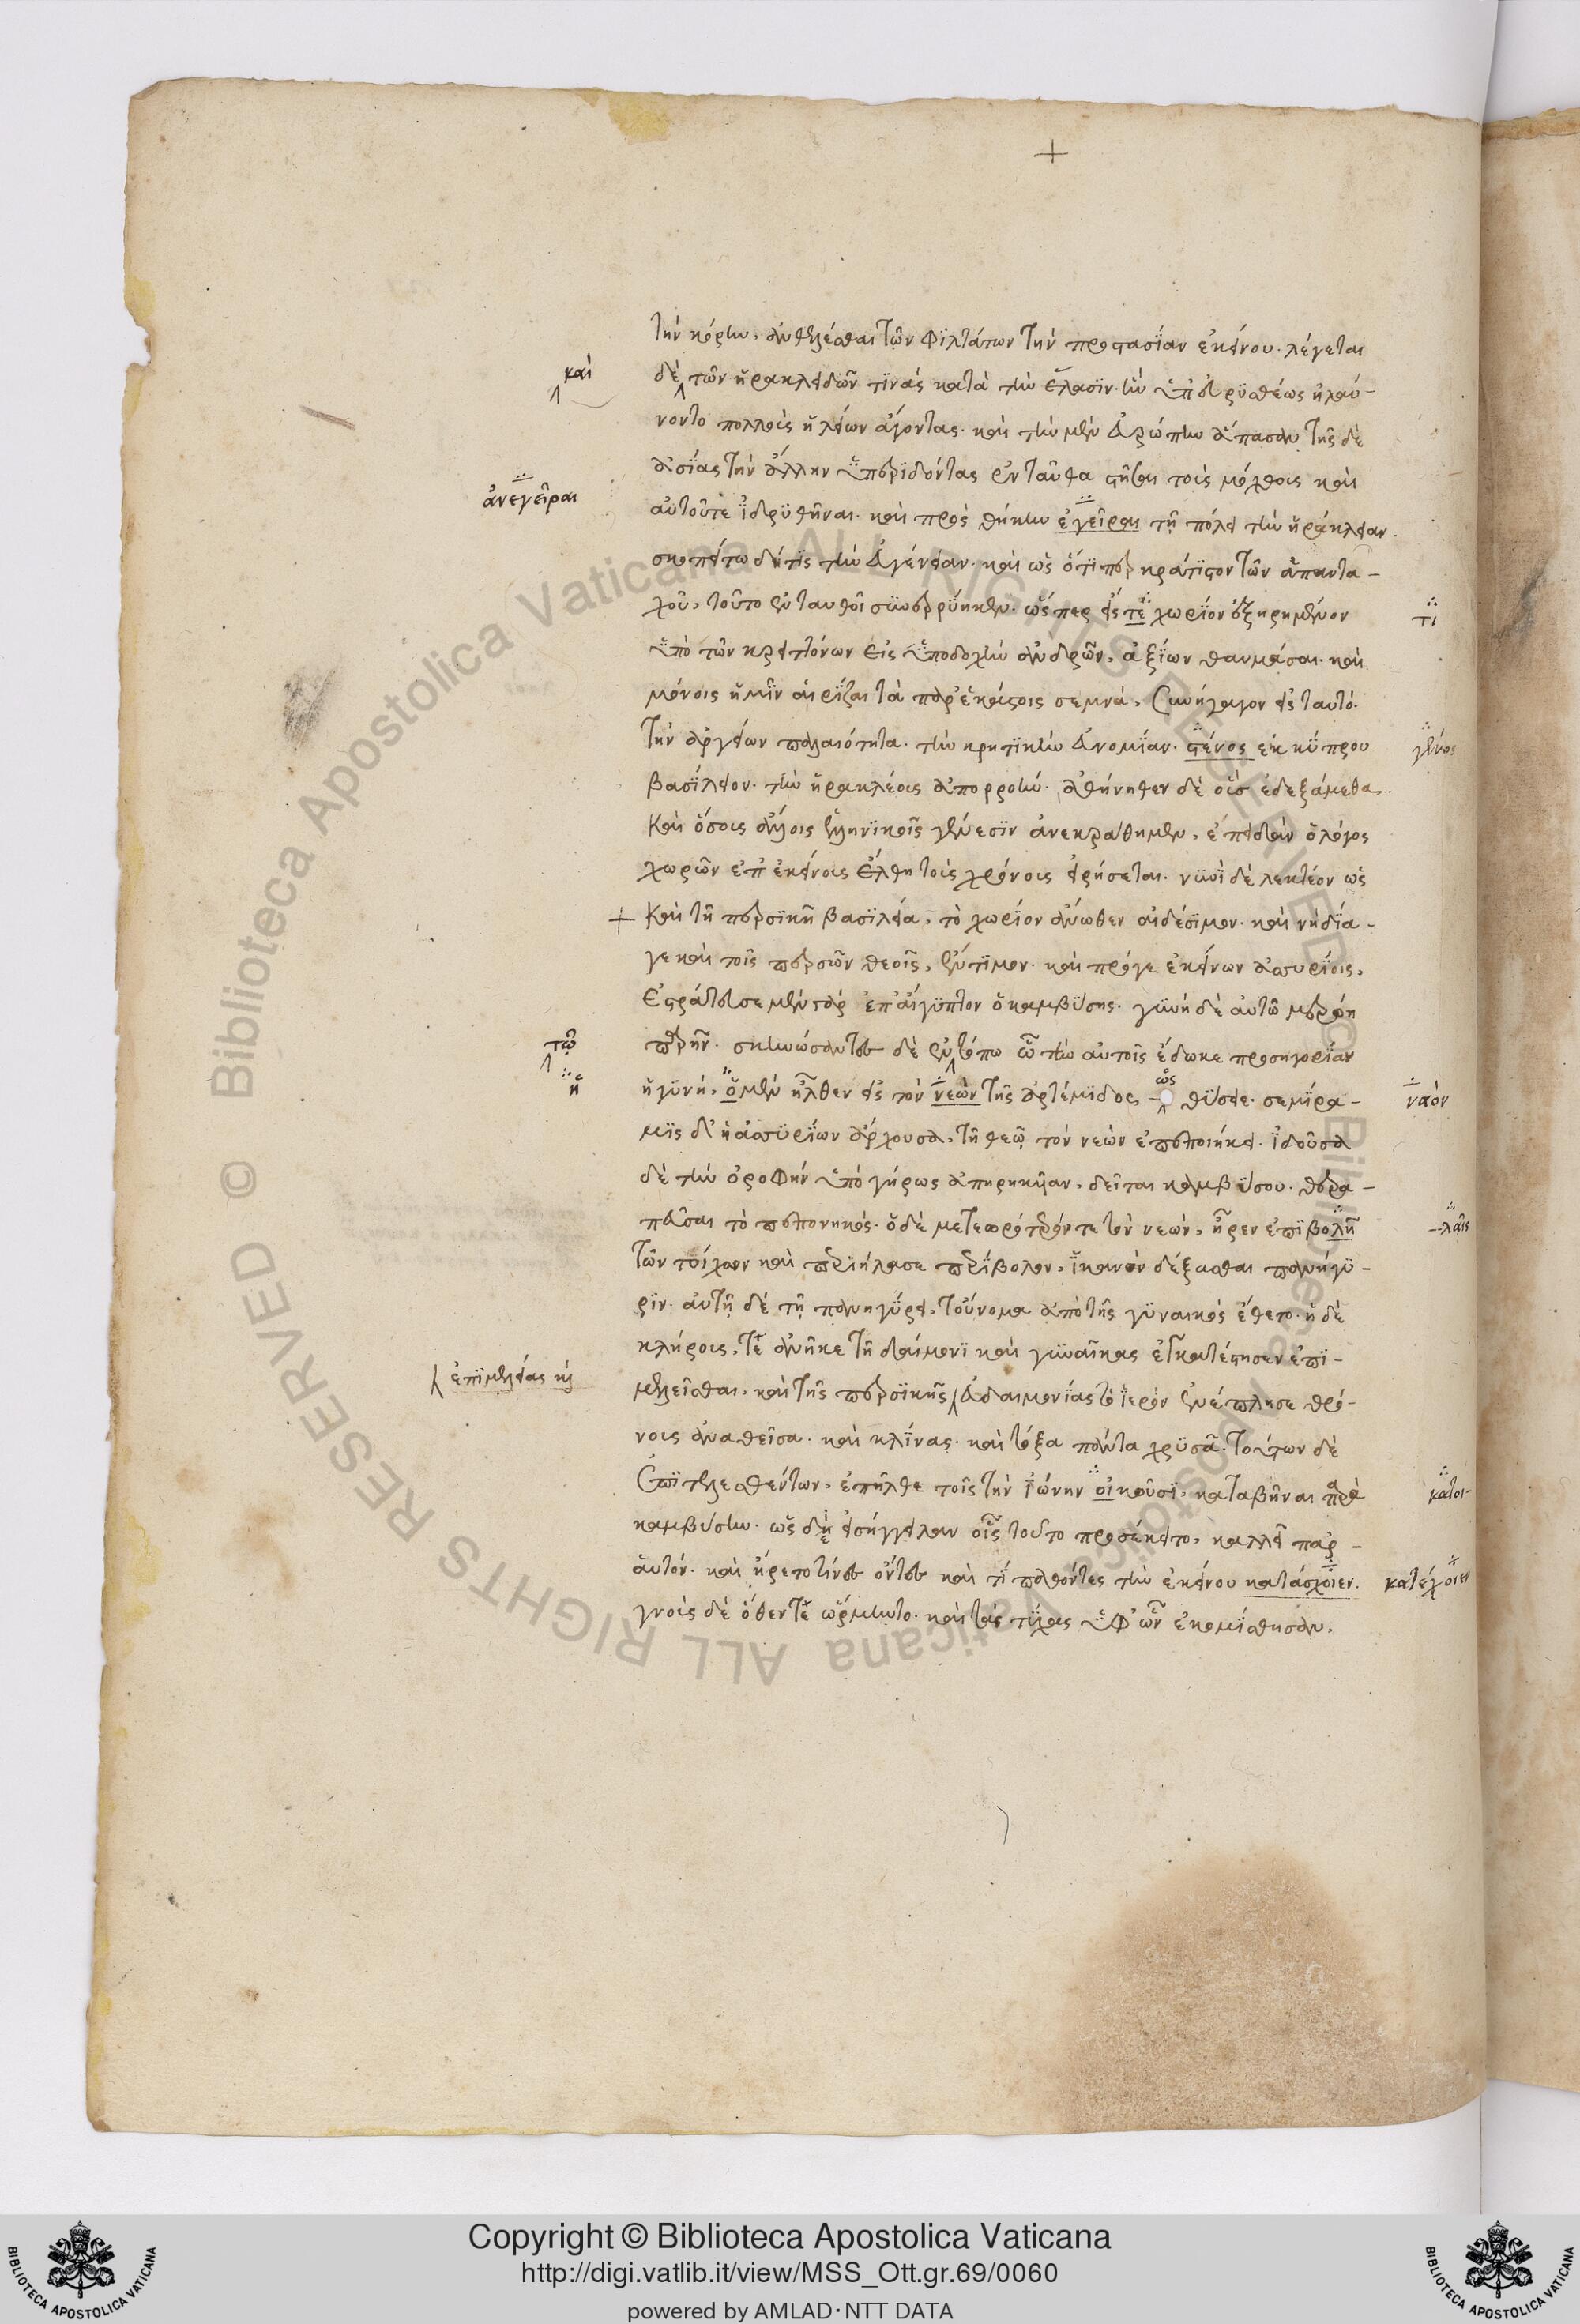 +
τὴν κόρην, ἀνθελέσθαι τῶν φιλτάτων τὴν προστασίαν ἐκείνου. λέγεται
καὶ
δὲ τῶν ἡρακλειδῶν τινὰς κατὰ τὴν ἔλασιν. ἣν ὑπ' εὐρυσθέως ἠλαύ-
νοντο πολλοὺς ἠλείων ἄγοντας. καὶ τὴν μὲν εὐρώπην ἅπασαν τῆς δὲ
ἀσίας τὴν ἄλλην ὑπεριδόντας ἐνταῦθα στῆσαι τοὺς μόχθους καὶ
ἀνεγεῖραι
αὐτοῦ τε ἱδρυθῆναι. καὶ προσθήκην ἐγεῖραι τῇ πόλει τὴν ἡράκλειαν.
σκοπείτω δή τις τὴν εὐγένειαν. καὶ ὡς ὅτι περ κράτιστον τῶν ἁπαντα-
χοῦ, τοῦτο ἐνταυθοῖ συνερρύηκεν. ὥσπερ εἴς τε χωρίον ἐξῃρημένον
τι
ὑπὸ τῶν κρειττόνων εἰς ὑποδοχὴν ἀνδρῶν, ἀξίων θαυμάσαι. καὶ
μόνοις ἡμῖν αἱ ῥίζαι τὰ παρ' ἑκάστοις σεμνὰ, συνήγαγον εἰς ταυτό.
τὴν ἀργείων παλαιότητα. τὴν κρητικὴν εὐνομίαν. γένος ἐκ κύπρου
γένος
βασίλειον. τὴν ἡρακλέους ἀπορροήν. ἀθήνηθεν δὲ οὓς ἐδεξάμεθα.
καὶ ὅσοις ἄλλοις ἑλληνικοῖς γένεσιν ἀνεκράθημεν, ἐπειδὰν ὁ λόγος
χωρῶν ἐπ' ἐκείνους ἔλθῃ τοὺς χρόνους εἰρήσεται. νυνὶ δὲ λεκτέον ὡς
+ καὶ τῇ περσικῇ βασιλείᾳ, τὸ χωρίον ἄνωθεν αἰδέσιμον. καὶ νὴ δία
γε καὶ τοῖς περσῶν θεοῖς, ἔντιμον. καὶ πρό γε ἐκείνων ἀσσυρίοις.
ἐστράτευσε μὲν γὰρ ἐπ' αἴγυπτον ὁ καμβύσης. γυνὴ δὲ αὐτῷ μερόη
τῷ
παρῆν. σκηνώσαντες δὲ ἐν τόπῳ ᾧ τὴν αὐτοῖς ἔδωκε προσηγορίαν
ἡ
ἡ γυνή, ὁ μὲν ἦλθεν εἰς τὸν νεὼν τῆς ἀρτέμιδος, ὡς θύσειε. σεμίρα-
ναὸν
μις δ' ἡ ἀσσυρίων ἄρχουσα, τῇ θεῷ τὸν νεὼν ἐπεποιήκει. ἰδοῦσα
δὲ τὴν ὀροφὴν ὑπὸ γήρως ἀπηρηκυῖαν, δεῖται καμβύσου. θερα-
πεῦσαι τὸ πεπονηκός. ὁ δὲ μετεωρότερόν τε τὸν νεὼν, ἦρεν ἐπιβολῇ
-λαῖς
τῶν τοίχων καὶ περιήλασε περίβολον, ἱκανὸν δέξασθαι πανήγυ-
ριν. αὐτῇ δὲ τῇ πανηγύρει, τοὔνομα ἀπὸ τῆς γυναικὸς ἔθετο. ἡ δὲ
κλήρους, τε ἀνῆκε τῇ δαίμονι καὶ γυναῖκας ἐγκατέστησεν ἐπι-
ἐπιμελείας καὶ
μελεῖσθαι. καὶ τῆς περσικῆς εὐδαιμονίας τὸ ἱερὸν ἐνέπλησε θρό-
νους ἀναθεῖσα. καὶ κλίνας. καὶ τόξα πάντα χρυσᾶ. τούτων δὲ
ἐπιτελεσθέντων, ἐπῆλθε τοῖς τὴν ἰώνην οἰκοῦσι, καταβῆναι παρὰ
κατοι-
καμβύσην. ὡς δὲ εἰσήγγειλαν οἷς τοῦτο προσέκειτο, καλεῖ παρ'
αὑτόν. καὶ ἤρετο τίνες ὄντες καὶ τί παθόντες τὴν ἐκείνου κατάσχοιεν.
κατέχοιεν
γνοὺς δὲ ὅθεν τε ὥρμηντο. καὶ τὰς τύχας ὑφ' ὧν ἐκομίσθησαν,
Copyright © Biblioteca Apostolica Vaticana
http://digi.vatlib.it/view/MSS_Ott.gr.69/0060
powered by AMLAD·NTT DATA